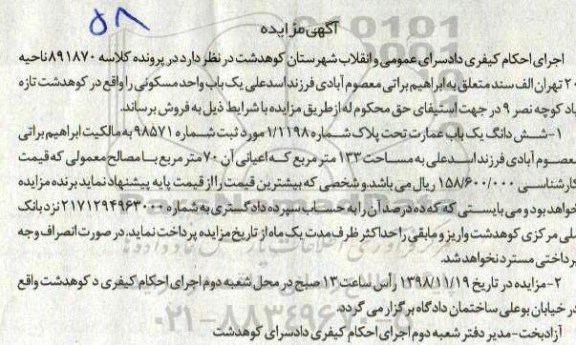 ۵۸
آگهی مزایده
اجرای احکام کیفری دادسرای عمومی و انقلاب شهرستان کوهدشت در نظر دارد در پرونده کلاسه ۸۹۱۸۷۰ ناحیه
۲۰ تهران الف سند متعلق به ابراهیم براتی معصوم آبادی فرزند اسدعلی یک باب واحد مسکونی را واقع در کوهدشت تازه
باد کوچه نصر ۹ در جهت استیفای حق محکوم له از طریق مزایده با شرایط ذیل به فروش برساند.
۱- شش دانگ یک باب عمارت تحت پلاک شماره ۱/۱۱۹۸ مورد ثبت شماره ۹۸۵۷۱ به مالکیت ابراهیم براتی
معصوم آبادی فرزند اسدعلی به مساحت ۱۳۳ متر مربع که اعیانی آن ۷۰ متر مربع با مصالح معمولی که قیمت
کارشناسی ۱۵۸/۶۰۰/۰۰۰ ریال می باشد و شخصی که بیشترین قیمت را از قیمت پایه پیشنهاد نماید برنده مزایده
خواهد بود و می بایستی که ده درصد آن را به حساب سپرده دادگستری به شماره ۲۱۷۱۲۹۴۹۶۳۰۰۰ نزد بانک
ملی مرکزی کوهدشت واریز و مابقی را حداکثر ظرف مدت یک ماه از تاریخ مزایده پرداخت نماید. در صورت انصراف وجه
پرداختی مسترد نخواهد شد.
۲- مزایده در تاریخ ۱۳۹۸/۱۱/۱۹ رأس ساعت ۱۳ صبح در محل شعبه دوم اجرای احکام کیفری د کوهدشت واقع
در خیابان بوعلی ساختمان دادگاه برگزار می گردد.
آزادبخت- مدیر دفتر شعبه دوم اجرای احکام کیفری دادسرای کوهدشت